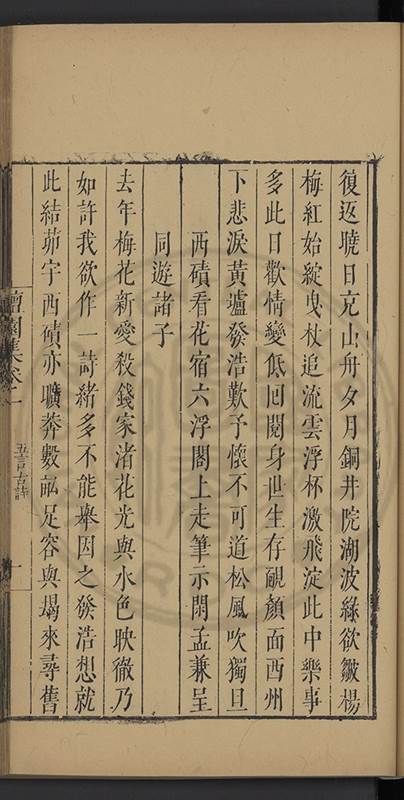 復返曉日充山舟夕月銅井院湖波綠欲皺楊
梅紅始綻曳杖追流雲浮杯激飛淀此中樂事
多此日歡情變低囘閱身世生存靦顏面西州
下悲淚黃壚發浩歎予懷不可道松風吹獨旦
西磧看花宿六浮閣上走筆示閑孟兼呈
同遊諸子
去年梅花新愛殺錢家渚花光與水色映徹乃
如許我欲作一詩緒多不能舉因之發浩想就
此結茆宇西磧亦曠莽數畝足容與朅來尋舊
檀園集卷二
五言古詩